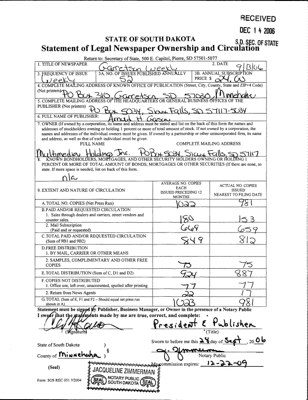 RECEIVED
DEC 14 2006
S.D. SEC. OF STATE
STATE OF SOUTH DAKOTA
Statement of Legal Newspaper Ownership and Circulation
Return to: Secretary of State, 500 E. Capitol, Pierre, SD 57501-5077
1. TITLE OF NEWSPAPER Garretson Weekly 2. DATE
3. FREQUENCY OF ISSUE Weekly 3A. NO. OF ISSUES PUBLISHED ANNUALLY 52 3B. ANNUAL SUBSCRIPTION PRICE $ 24.00
4. COMPLETE MAILING ADDRESS OF KNOWN OFFICE OF PUBLICATION (Street, City, County, State and ZIP+4 Code) (Not Printers)
PO Box 310 Garretson SD 57030 Minnehaha
5. COMPLETE MAILING ADDRESS OF THE HEADQUARTERS OR GENERAL BUSINESS OFFICES OF THE PUBLISHER (Not Printers)
PO Box 5034, Sioux Falls, SD 57117-5034
6. FULL NAME OF PUBLISHER:
7. OWNER (If owned by a corporation, its name and address must be stated and also on the back of this form the names and
addresses of stockholders owning or holding 1 percent or more of total amount of stock. If not owned by a corporation, the
names and addresses of the individual owners must be given. If owned by a partnership or other unincorporated firm, its name
and address, as well as that of each individual must be given.
FULL NAME COMPLETE MAILING ADDRESS
Multimedia Holdings Inc. PO Box 5034, Sioux Falls, SD 57117
8. KNOWN BONDHOLDERS, MORTGAGEES, AND OTHER SECURITY HOLDERS OWNING OR HOLDING 1
PERCENT OR MORE OF TOTAL AMOUNT OF BONDS, MORTGAGES OR OTHER SECURITIES (If there are none, so
state. If more space is needed, list on back of this form.
n/a
9. EXTENT AND NATURE OF CIRCULATION
AVERAGE NO. COPIES EACH ISSUE DURING PRECEDING 12 MONTHS
ACTUAL NO. COPIES ISSUED NEAREST TO FILING DATE
A. TOTAL NO. COPIES (Net Press Run) 981
B. PAID AND/OR REQUESTED CIRCULATION
1. Sales through dealers and carriers, street vendors and counter sales 180 153
2. Mail Subscription (Paid and or requested) 669 659
C. TOTAL PAID AND/OR REQUESTED CIRCULATION (Sum of 9B1 and 9B2) 849 812
D. FREE DISTRIBUTION
1. BY MAIL, CARRIER OR OTHER MEANS
2. SAMPLES, COMPLIMENTARY AND OTHER FREE COPIES 75 75
E. TOTAL DISTRIBUTION (Sum of C, D1 and D2) 924 887
F. COPIES NOT DISTRIBUTED
1. Office use, left over, unaccounted, spoiled after printing 77 77
2. Return from News Agents 22 17
G. TOTAL (Sum of E, F1 and F2 - Should equal net press run shown in A) 1023 981
Statement must be signed by Publisher, Business Manager, or Owner in the presence of a Notary Public
I swear that the statements made by me are true, correct, and complete:
President & Publisher
(Signature) (Title)
State of South Dakota )
County of Minnehaha )
Sworn to before me this 28 day of Sept. 2006
Notary Public
(Seal)
My commission expires: 12-22-09
JACQUELINE ZIMMERMAN
NOTARY PUBLIC
SOUTH DAKOTA